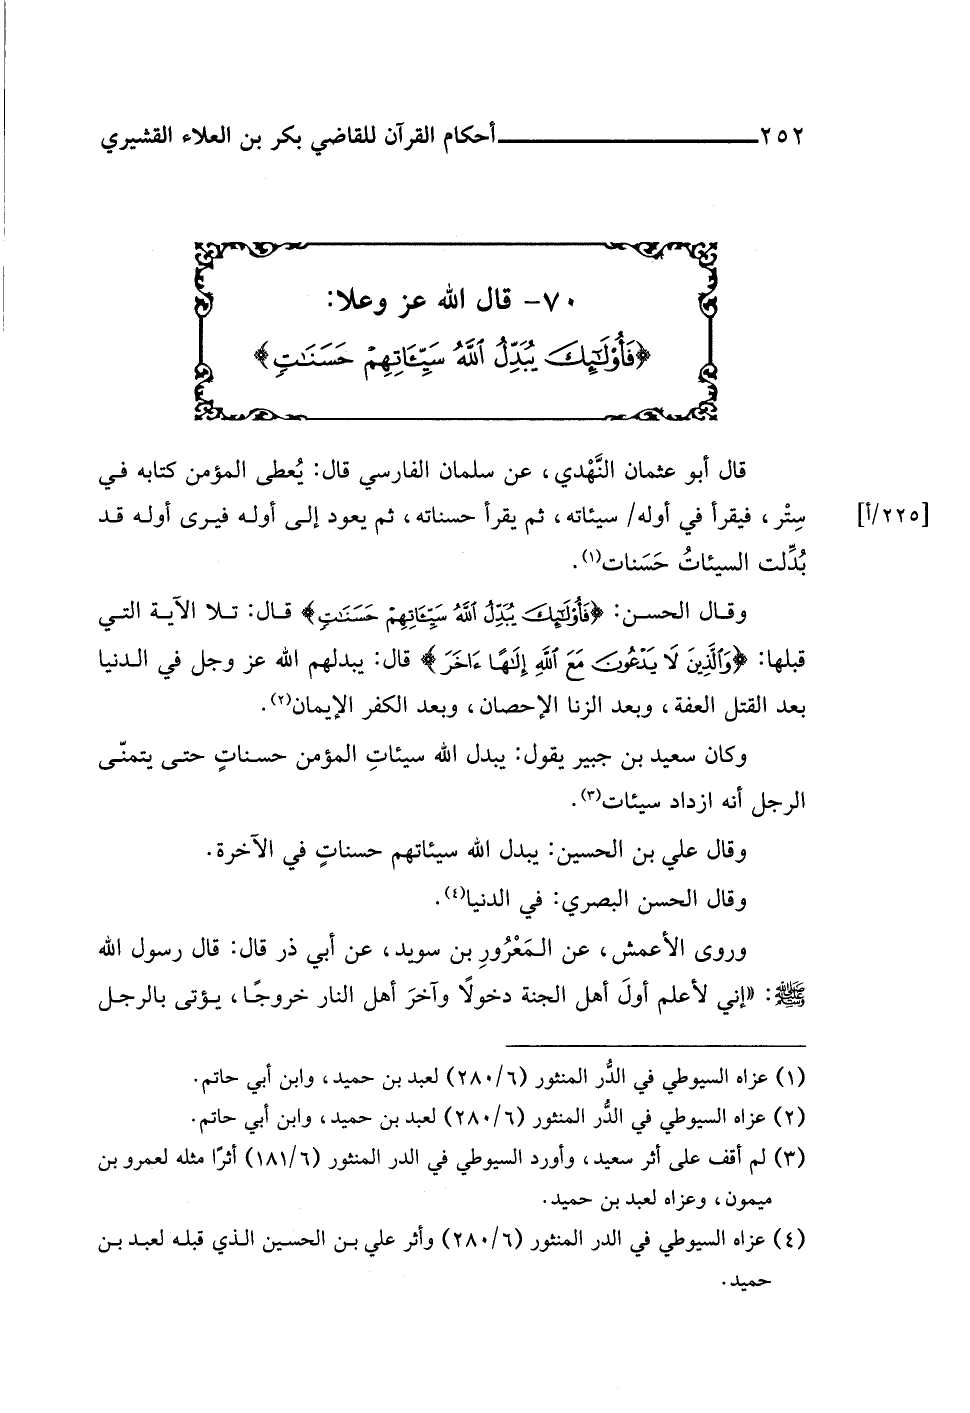 ٢٥٢ أحكام القرآن للقاضي بكر بن العلاء القشيري
٧٠- قال الله عز وعلا:
﴿فَأُوْلَٰٓئِكَ يُبَدِّلُ ٱللَّهُ سَيِّـَٔاتِهِمۡ حَسَنَٰتٖ﴾
قال أبو عثمان النَّهْدي، عن سلمان الفارسي قال: يُعطى المؤمن كتابه في
سِتْر، فيقرأ في أوله/ سيئاته، ثم يقرأ حسناته، ثم يعود إلى أوله فيرى أوله قد
[٢٢٥/أ]
بُدِّلت السيئاتُ حَسَنات(١).
وقال الحسن: ﴿فَأُوْلَٰٓئِكَ يُبَدِّلُ ٱللَّهُ سَيِّـَٔاتِهِمۡ حَسَنَٰتٖ﴾ قال: تلا الآية التي
قبلها: ﴿وَٱلَّذِينَ لَا يَدۡعُونَ مَعَ ٱللَّهِ إِلَٰهًا ءَاخَرَ﴾ قال: يبدلهم الله عز وجل في الدنيا
بعد القتل العفة، وبعد الزنا الإحصان، وبعد الكفر الإيمان(٢).
وكان سعيد بن جبير يقول: يبدل الله سيئاتِ المؤمن حسناتٍ حتى يتمنّى
الرجل أنه ازداد سيئات(٣).
وقال علي بن الحسين: يبدل الله سيئاتهم حسناتٍ في الآخرة.
وقال الحسن البصري: في الدنيا(٤).
وروى الأعمش، عن المَعْرُورِ بن سويد، عن أبي ذر قال: قال رسول الله
ﷺ: «إني لأعلم أولَ أهل الجنة دخولًا وآخرَ أهل النار خروجًا، يؤتى بالرجل
(١) عزاه السيوطي في الدُّر المنثور (٢٨٠/٦) لعبد بن حميد، وابن أبي حاتم.
(٢) عزاه السيوطي في الدُّر المنثور (٢٨٠/٦) لعبد بن حميد، وابن أبي حاتم.
(٣) لم أقف على أثر سعيد، وأورد السيوطي في الدر المنثور (١٨١/٦) أثرًا مثله لعمرو بن
ميمون، وعزاه لعبد بن حميد.
(٤) عزاه السيوطي في الدر المنثور (٢٨٠/٦) وأثر علي بن الحسين الذي قبله لعبد بن
حميد.